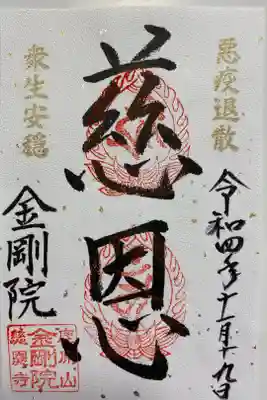 悪疫退散
令和四年十一月十九日
慈恩
衆生安穏
金剛院
金剛院